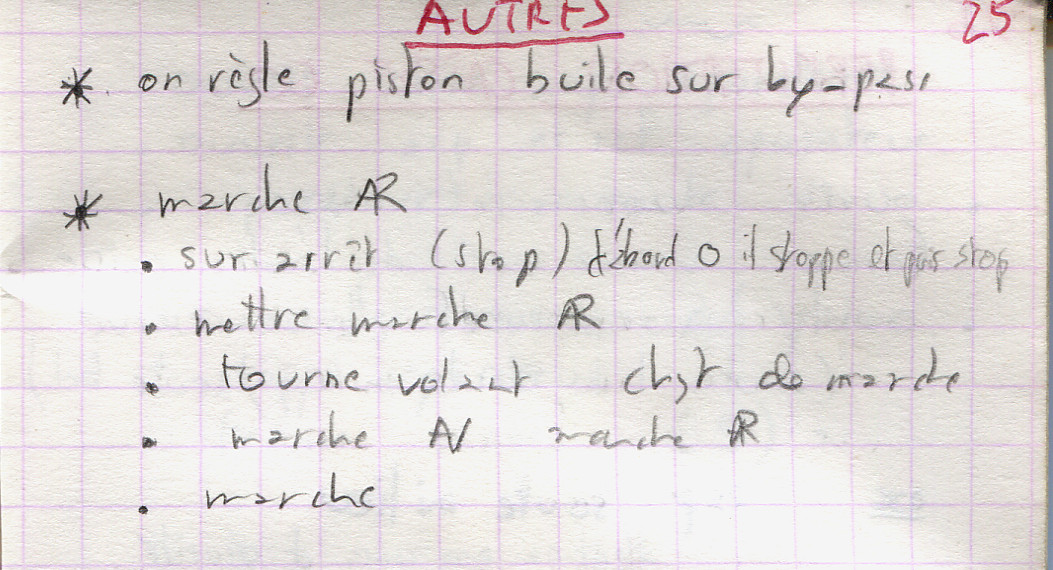 AUTRES
25
* on règle piston huile sur by-pass
* marche AR
• sur arrêt (stop) d'abord 0 il stoppe et puis stop
• mettre marche AR
• tourne volant chgt de marche
• marche AV marche AR
• marche